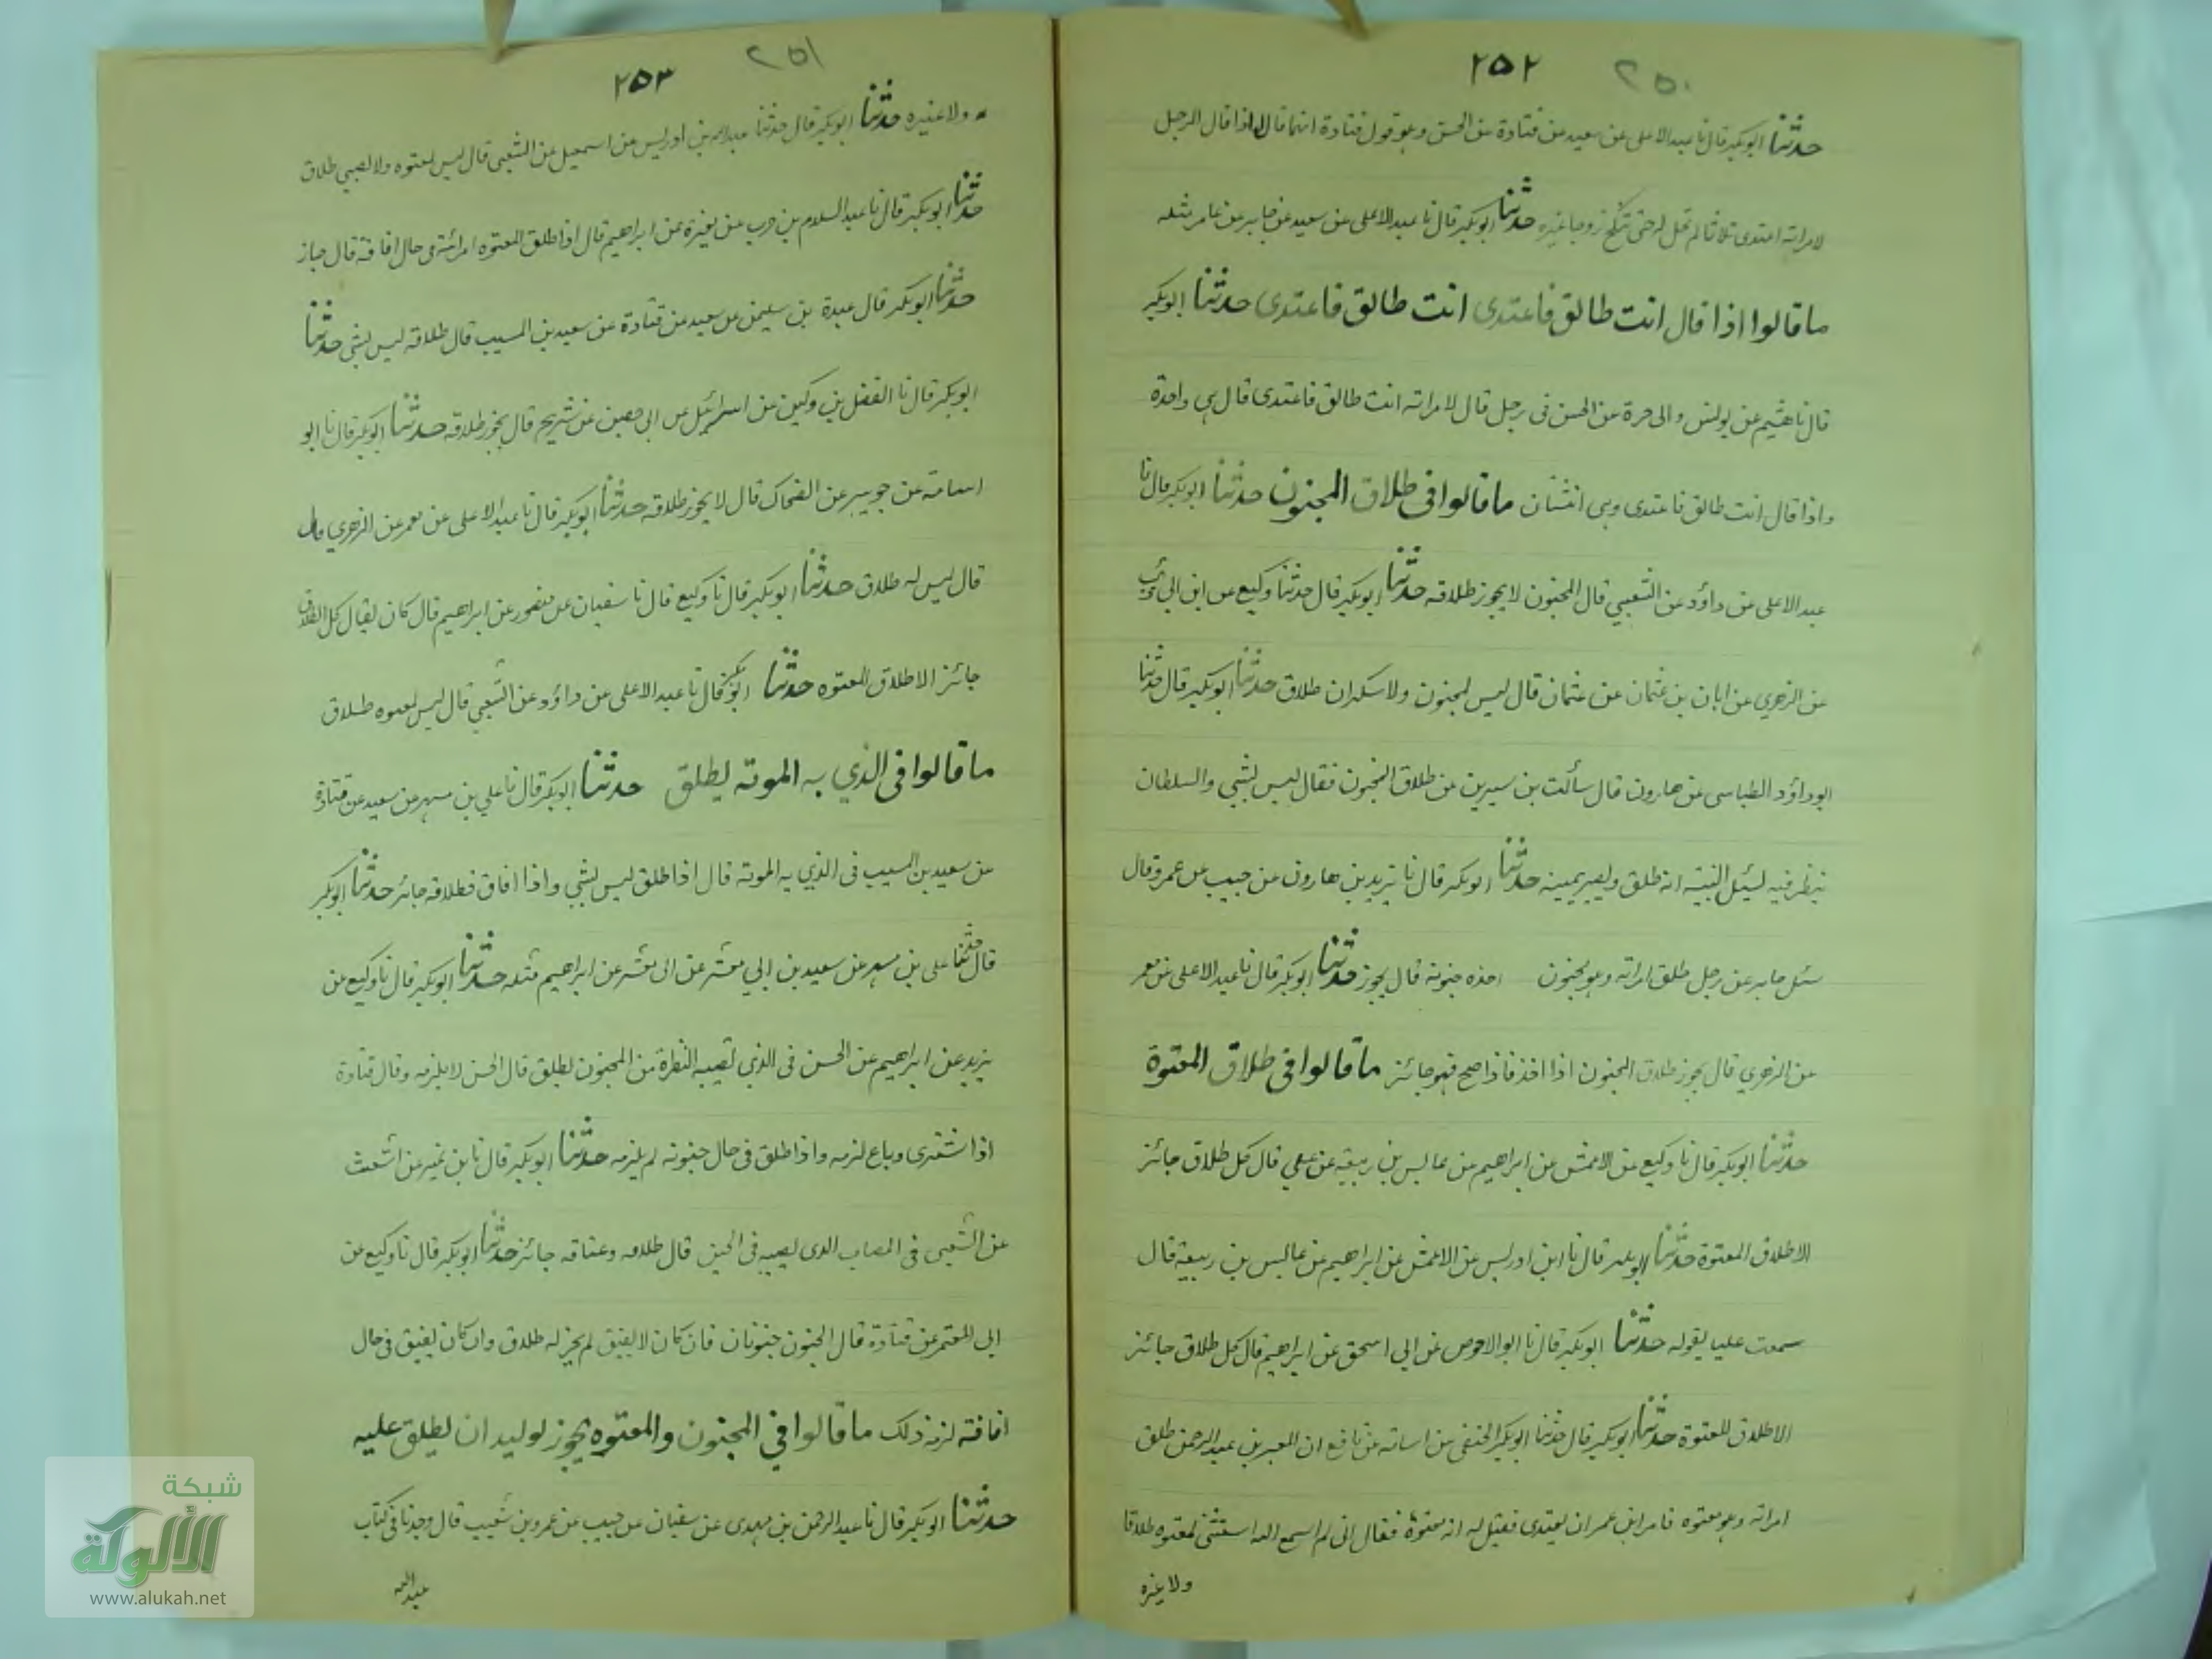 ٢٥٢ ٢٥٠
حدثنا ابوبكر قال نا عبد الاعلى عن سعيد عن قتادة عن الحسن وهو قول قتادة انهما قالا اذا قال الرجل
لامراته اعتدى ثلاثا لم تحل له حتى تنكح زوجا غيره حدثنا ابوبكر قال نا عبد الاعلى عن سعيد عن جابر عن عامر مثله
ما قالوا اذا قال انت طالق فاعتدى انت طالق فاعتدى حدثنا ابوبكر
قال نا هشيم عن يونس وابى حرة عن الحسن فى رجل قال لامراته انت طالق فاعتدى قال هى واحدة
واذا قال انت طالق فاعتدى وهى اثنتان ما قالوا فى طلاق المجنون حدثنا ابوبكر قال نا
عبد الاعلى عن داؤد عن الشعبي قال المجنون لا يجوز طلاقه حدثنا ابوبكر قال حدثنا وكيع عن ابن ابى ذئب
عن الزهري عن ابان بن عثمان عن عثمان قال ليس لمجنون ولا سكران طلاق حدثنا ابوبكر قال حدثنا
ابوداؤد الطيالسى عن هارون قال سألت بن سيرين عن طلاق المجنون فقال ليس بشيى والسلطان
ينظر فيه يسئل البينه انه طلق ويصير يمينه حدثنا ابوبكر قال نا يزيد بن هارون عن حبيب عن عمر وقال
سئل جابر عن رجل طلق امراته وهو مجنون اخذه جنونه قال يجوز حدثنا ابوبكر قال نا عبد الاعلى عن معمر
عن الزهري قال يجوز طلاق المجنون اذا اخذ فاذا صح فهو جائز ما قالوا فى طلاق المعتوة
حدثنا ابوبكر قال نا وكيع عن الاعمش عن ابراهيم عن عابس بن ربيعه عن على قال كل طلاق جائز
الا طلاق المعتوة حدثنا ابوبكر قال نا ابن ادريس عن الاعمش عن ابراهيم عن عابس بن ربيعة قال
سمعت عليا يقوله حدثنا ابوبكر قال نا ابو الاحوص عن ابى اسحق عن ابراهيم قال كل طلاق جائز
الا طلاق المعتوة حدثنا ابوبكر قال حدثنا ابوبكر الحنفى عن اسامه عن نافع ان المجبر بن عبد الرحمن طلق
امراته وهو معتوه فامر ابن عمر ان يعتدى فقيل له انه معتوة فقال انى لم اسمع الله استثنى لمعتوه طلاقا
ولا غيره
٢٥٣ ٢٥١
ولا غيره حدثنا ابوبكر قال حدثنا عبدالله بن ادريس عن اسمعيل عن الشعبى قال ليس لمعتوه ولا لصبي طلاق
حدثنا ابوبكر قال نا عبد السلام بن حرب عن مغيرة عن ابراهيم قال اذا طلق المعتوه امرائته فى حال افاقة قال جاز
حدثنا ابوبكر قال عبدة بن سليمن عن سعيد عن قتادة عن سعيد بن المسيب قال طلاقه ليس بشى حدثنا
ابوبكر قال نا الفضل بن دكين عن اسرائيل عن ابى حصين عن شريح قال يجوز طلاقه حدثنا ابوبكر قال نا ابو
اسامة عن جويبر عن الضحاك قال لا يجوز طلاقه حدثنا ابوبكر قال نا عبد الاعلى عن معمر عن الزهري قال
قال ليس له طلاق حدثنا ابوبكر قال نا وكيع قال نا سفيان عن منصور عن ابراهيم قال كان يقال كل الطلاق
جائز الا طلاق المعتوه حدثنا ابوبكر قال نا عبد الاعلى عن داؤد عن الشعبي قال ليس لمعتوه طلاق
ما قالوا فى الذي به الموته يطلق حدثنا ابوبكر قال نا علي بن مسهر عن سعيد عن قتادة
عن سعيد بن المسيب فى الذي به الموته قال اذا طلق ليس بشيى واذا افاق فطلاقه جائز حدثنا ابوبكر
قال حدثنا على بن مسهر عن سعيد بن ابى معشر عن ابى معشر عن ابراهيم مثله حدثنا ابوبكر قال نا وكيع عن
يزيد عن ابراهيم عن الحسن فى الذي تصيبه النظرة من المجنون يطلق قال الحسن لا يلزمه وقال قتادة
اذا اشترى وباع لزمه واذا طلق فى حال جنونه لم يلزمه حدثنا ابوبكر قال نا بن نمير عن اشعث
عن الشعبى فى المصاب الذى يصيبه فى الحين قال طلاقه وعتاقه جائز حدثنا ابوبكر قال نا وكيع عن
ابى المعتمر عن قتادة قال الجنون جنونان فان كان لا يفيق لم يجز له طلاق وان كان يفيق فى حال
افاقته لزمه ذلك ما قالوا في المجنون والمعتوه يجوز لوليه ان يطلق عليه
حدثنا ابوبكر قال نا عبد الرحمن بن مهدى عن سفيان عن حبيب عن عمرو بن شعيب قال وجدنا فى كتاب
عبدالله
شبكة
الألوكة
www.alukah.net